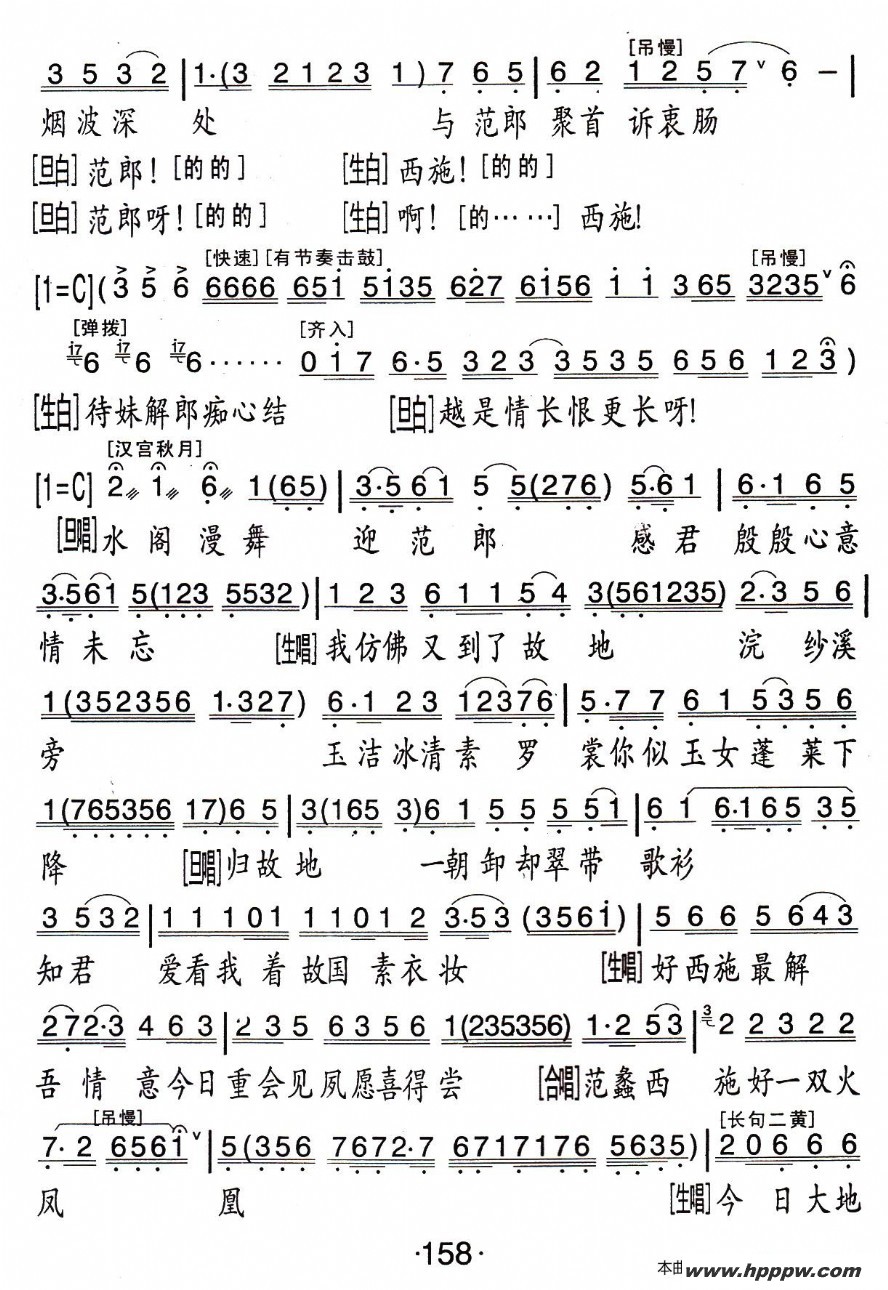 [吊慢]
3 5 3 2 | 1·(3 2 1 2 3 1) 7 6 5 | 6 2 1 2 5 7 ˅ 6 — |
烟波深 处 与 范郎 聚首 诉衷肠
[旦白]范郎！[的的] [生白]西施！[的的]
[旦白]范郎呀！[的的] [生白]啊！[的……]西施！
[快速][有节奏击鼓] [吊慢]
[1=C](3 5 6 6666 651 5135 627 6156 1 1 365 3235˅6
[弹拨] [齐入]
6 6 6······ 0 1 7 6·5 3 2 3 3 5 3 5 6 5 6 1 2 3)
[生白]待妹解郎痴心结 [旦白]越是情长恨更长呀！
[汉宫秋月]
[1=C] 2 1 6 1(65) | 3·561 5 5(276) 5·61 | 6·1 6 5
[旦唱]水 阁 漫 舞 迎 范 郎 感 君 殷殷心意
3·561 5(123 5532) | 1 2 3 6 1 1 5 4 3(561235) 2·3 5 6 |
情 未 忘 [生唱]我仿佛 又 到 了 故 地 浣 纱溪
1(352356 1·327) 6·1 2 3 12376 | 5·7 7 6 1 5356
旁 玉洁冰清素 罗 裳你 似 玉 女 蓬 莱下
1(765356 17)6 5 | 3(165 3)6 1 5 5 5 51 | 6 1 6·165 35
降 [旦唱]归故 地 一朝 卸 却翠 带 歌衫
3 532 | 1 1 101 1101 2 3·53 (3561) | 5 6 6 5 643
知君 爱看我 着 故国 素衣 妆 [生唱]好西施最解
272·3 4 6 3 | 2 3 5 6 3 5 6 1(235356) 1·2 53 | 2 2 3 2 2
吾 情 意今日重会见夙愿喜得尝 [合唱]范蠡西 施好一双火
[吊慢] [长句二黄]
7·2 6561˅ | 5(356 7672·7 6717176 5635) | 2 0 6 6 6
凤 凰 [生唱]今 日大地
·158·
本曲 www.hpppw.com